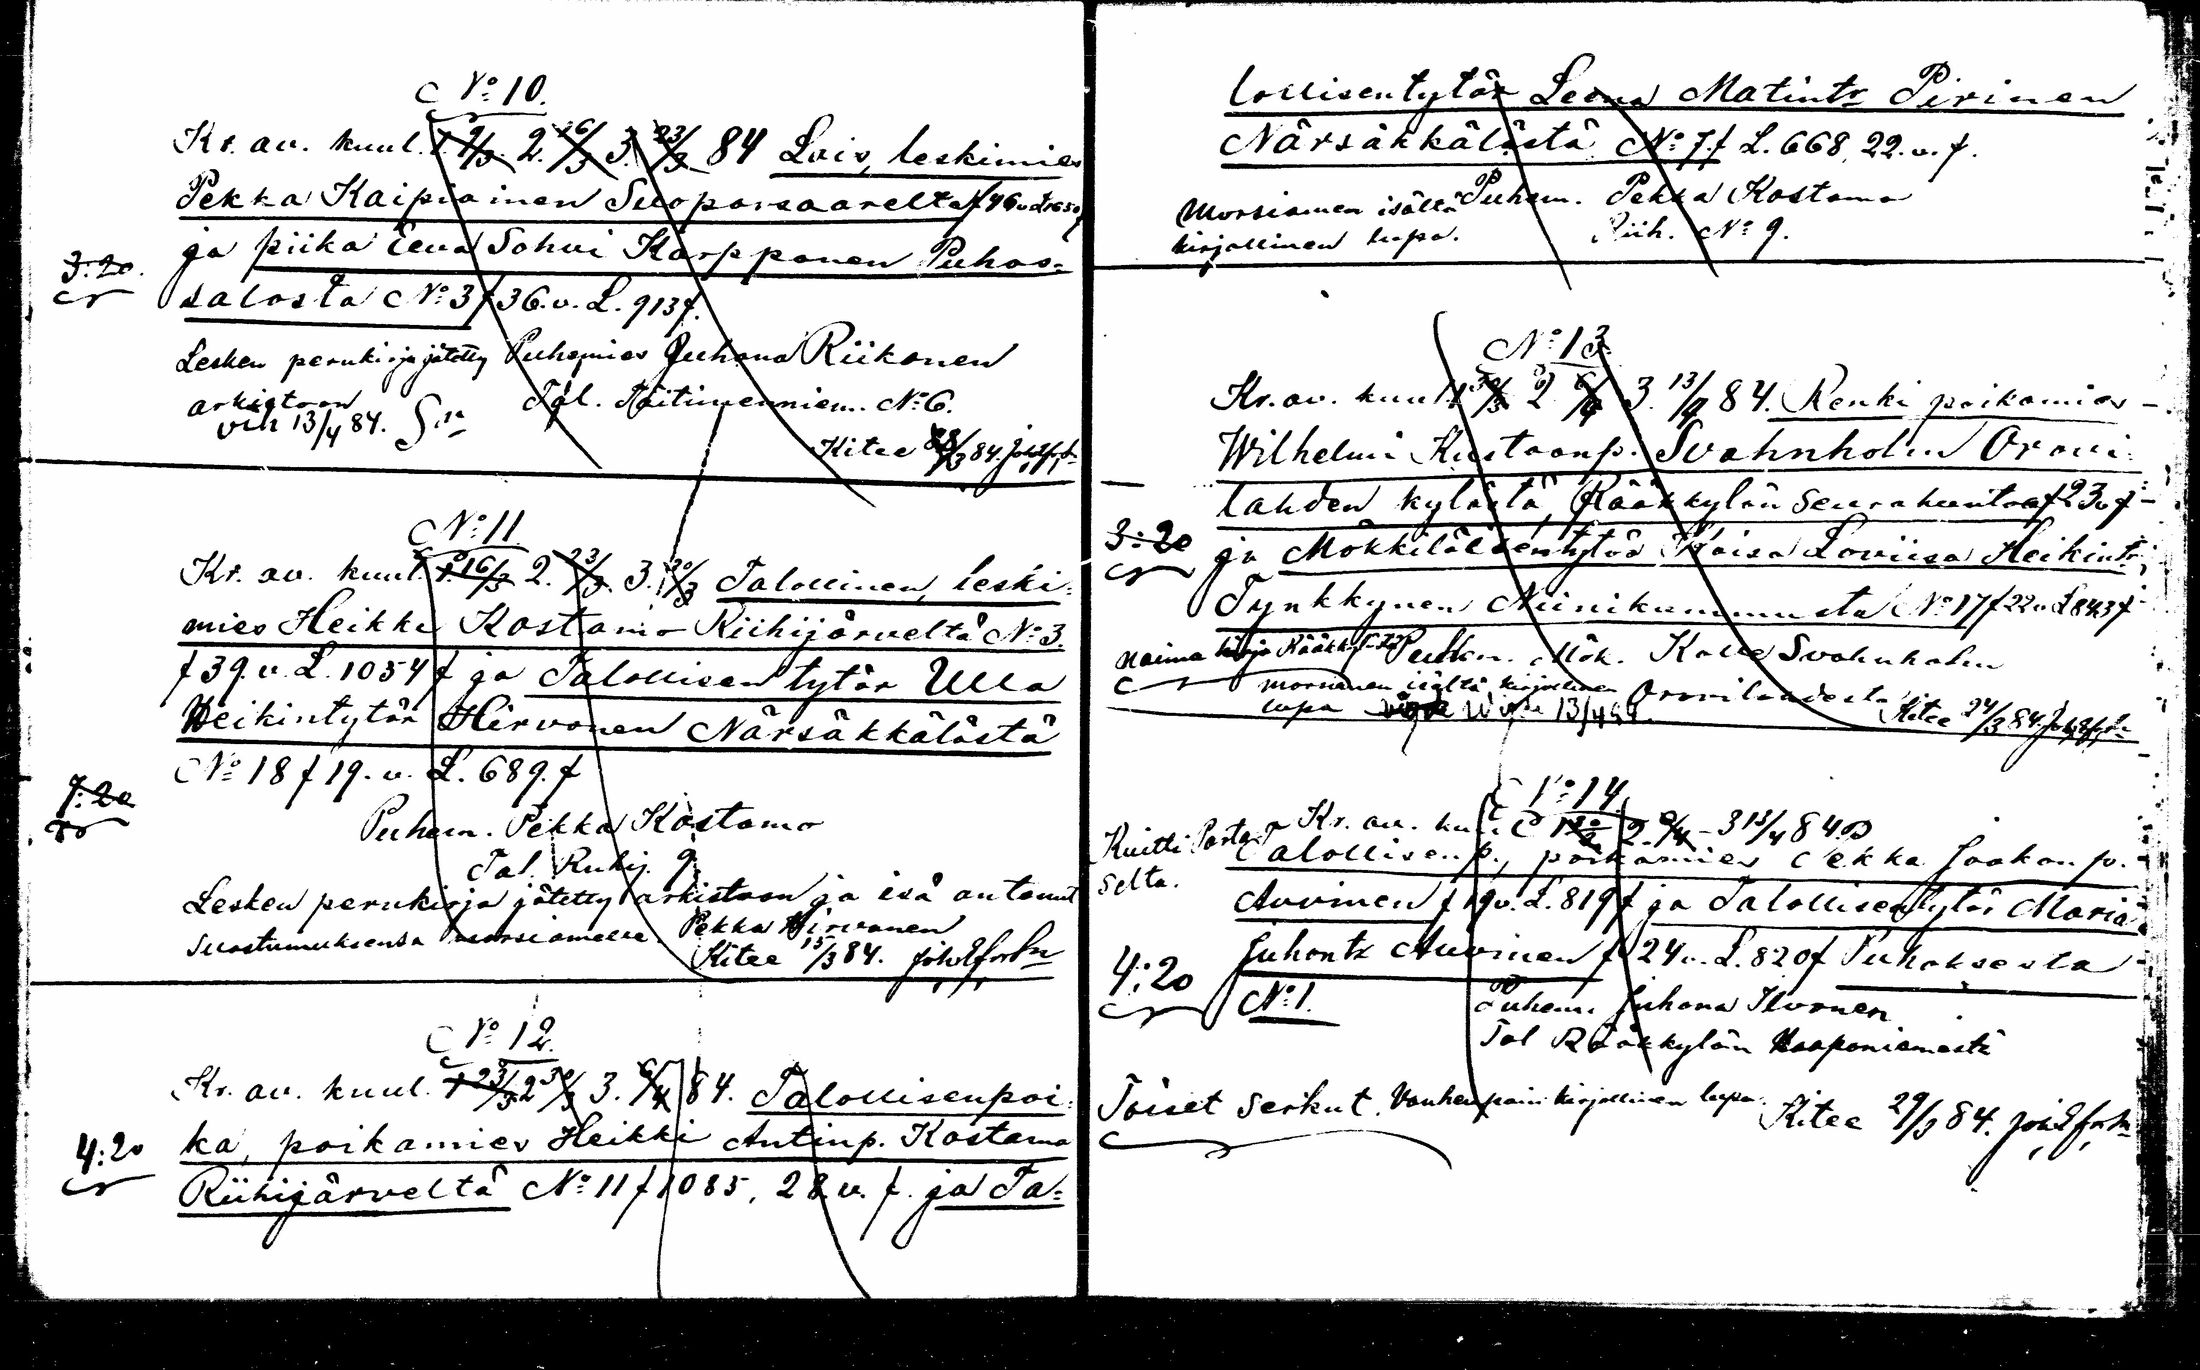 No 10.
Kr. av. kuul. 1. 9/3. 2. 16/3 3. 23/3 84 Lois, leskimies
Pekka Kaipiainen Suoparsaarelta f 46 v.
3:20. ja piika Eeva Sohvi Karppanen Puhos=
salosta No 3 f 36. v. L. 913 f.
Lesken perukirja jätetty Puhemies Juhana Riikonen
arkistoon Tal. Närsäkkälä
vih 13/4 84. Tal. No 6.
Kitee 84.
No 11.
Kr. av. kuul. 1. 16/3 2. 23/3. 3. 30/3 Talollinen, leski=
mies Heikki Kostamo Riihijärveltä No 3.
f 39. v. L. 1054 f ja Talollisen tytär Ulla
Heikintytär Hirvonen Närsäkkälästä
No 18 f 19. v. L. 689. f
7:20
Puhem. Pekka Kostamo
Tal. Riihij. 9.
Lesken perukirja jätetty arkistoon ja isä antanut
suostumuksensa morsiamelle. Pekka Hirvonen
Kitee 15/3 84.
No 12.
Kr. av. kuul. 1 23/3 2 30/3 3. 6/4 84. Talollisenpoi=
4:20 ka, poikamies Heikki Antinp. Kostamo
Riihijärveltä No 11 f 1085, 28. v. f. ja Ta=
lollisentytär Leena Matintr Pirinen
Närsäkkälästä No 7. f L. 668, 22. v. f.
Morsiamen isältä Puhem. Pekka Kostamo
kirjallinen lupa. Riih. No 9.
No 13.
Kr. av. kuul. 1 30/3 2 6/4 3. 13/4 84. Renki poikamies
Wilhelmi Kustaanp. Svahnholm Oravi=
lahden kylästä, Rääkkylän seurakuntaa f 23 v f
3:20 ja Mökkiläisentytär Kaisa Loviisa Heikintr
Tynkkynen Niinikummusta No 17 f 22 v. L 843 f
naima kirja Puhem. Mök. Kalle Svahnholm
morsiamen isältä kirjallinen Oravilahdesta
lupa 13/4 84. Kitee 24/3 84.
No 14
Kr. av. kuul 1 30/3 2. 6/4 - 3 13/4 84.
Kuitti Portaa
selta.
Talollisenp., poikamies Pekka Jaakonp.
Auvinen f 19 v. L. 819 f ja Talollisentytär Maria
4:20 Juhontr Auvinen f 24 v. L. 820 f Puhoksesta
No 1.
Puhem. Juhana Ilvonen
Tal Rääkkylän Haaponiemestä
Toiset serkut. Vanhempain kirjallinen lupa.
Kitee 29/3 84.